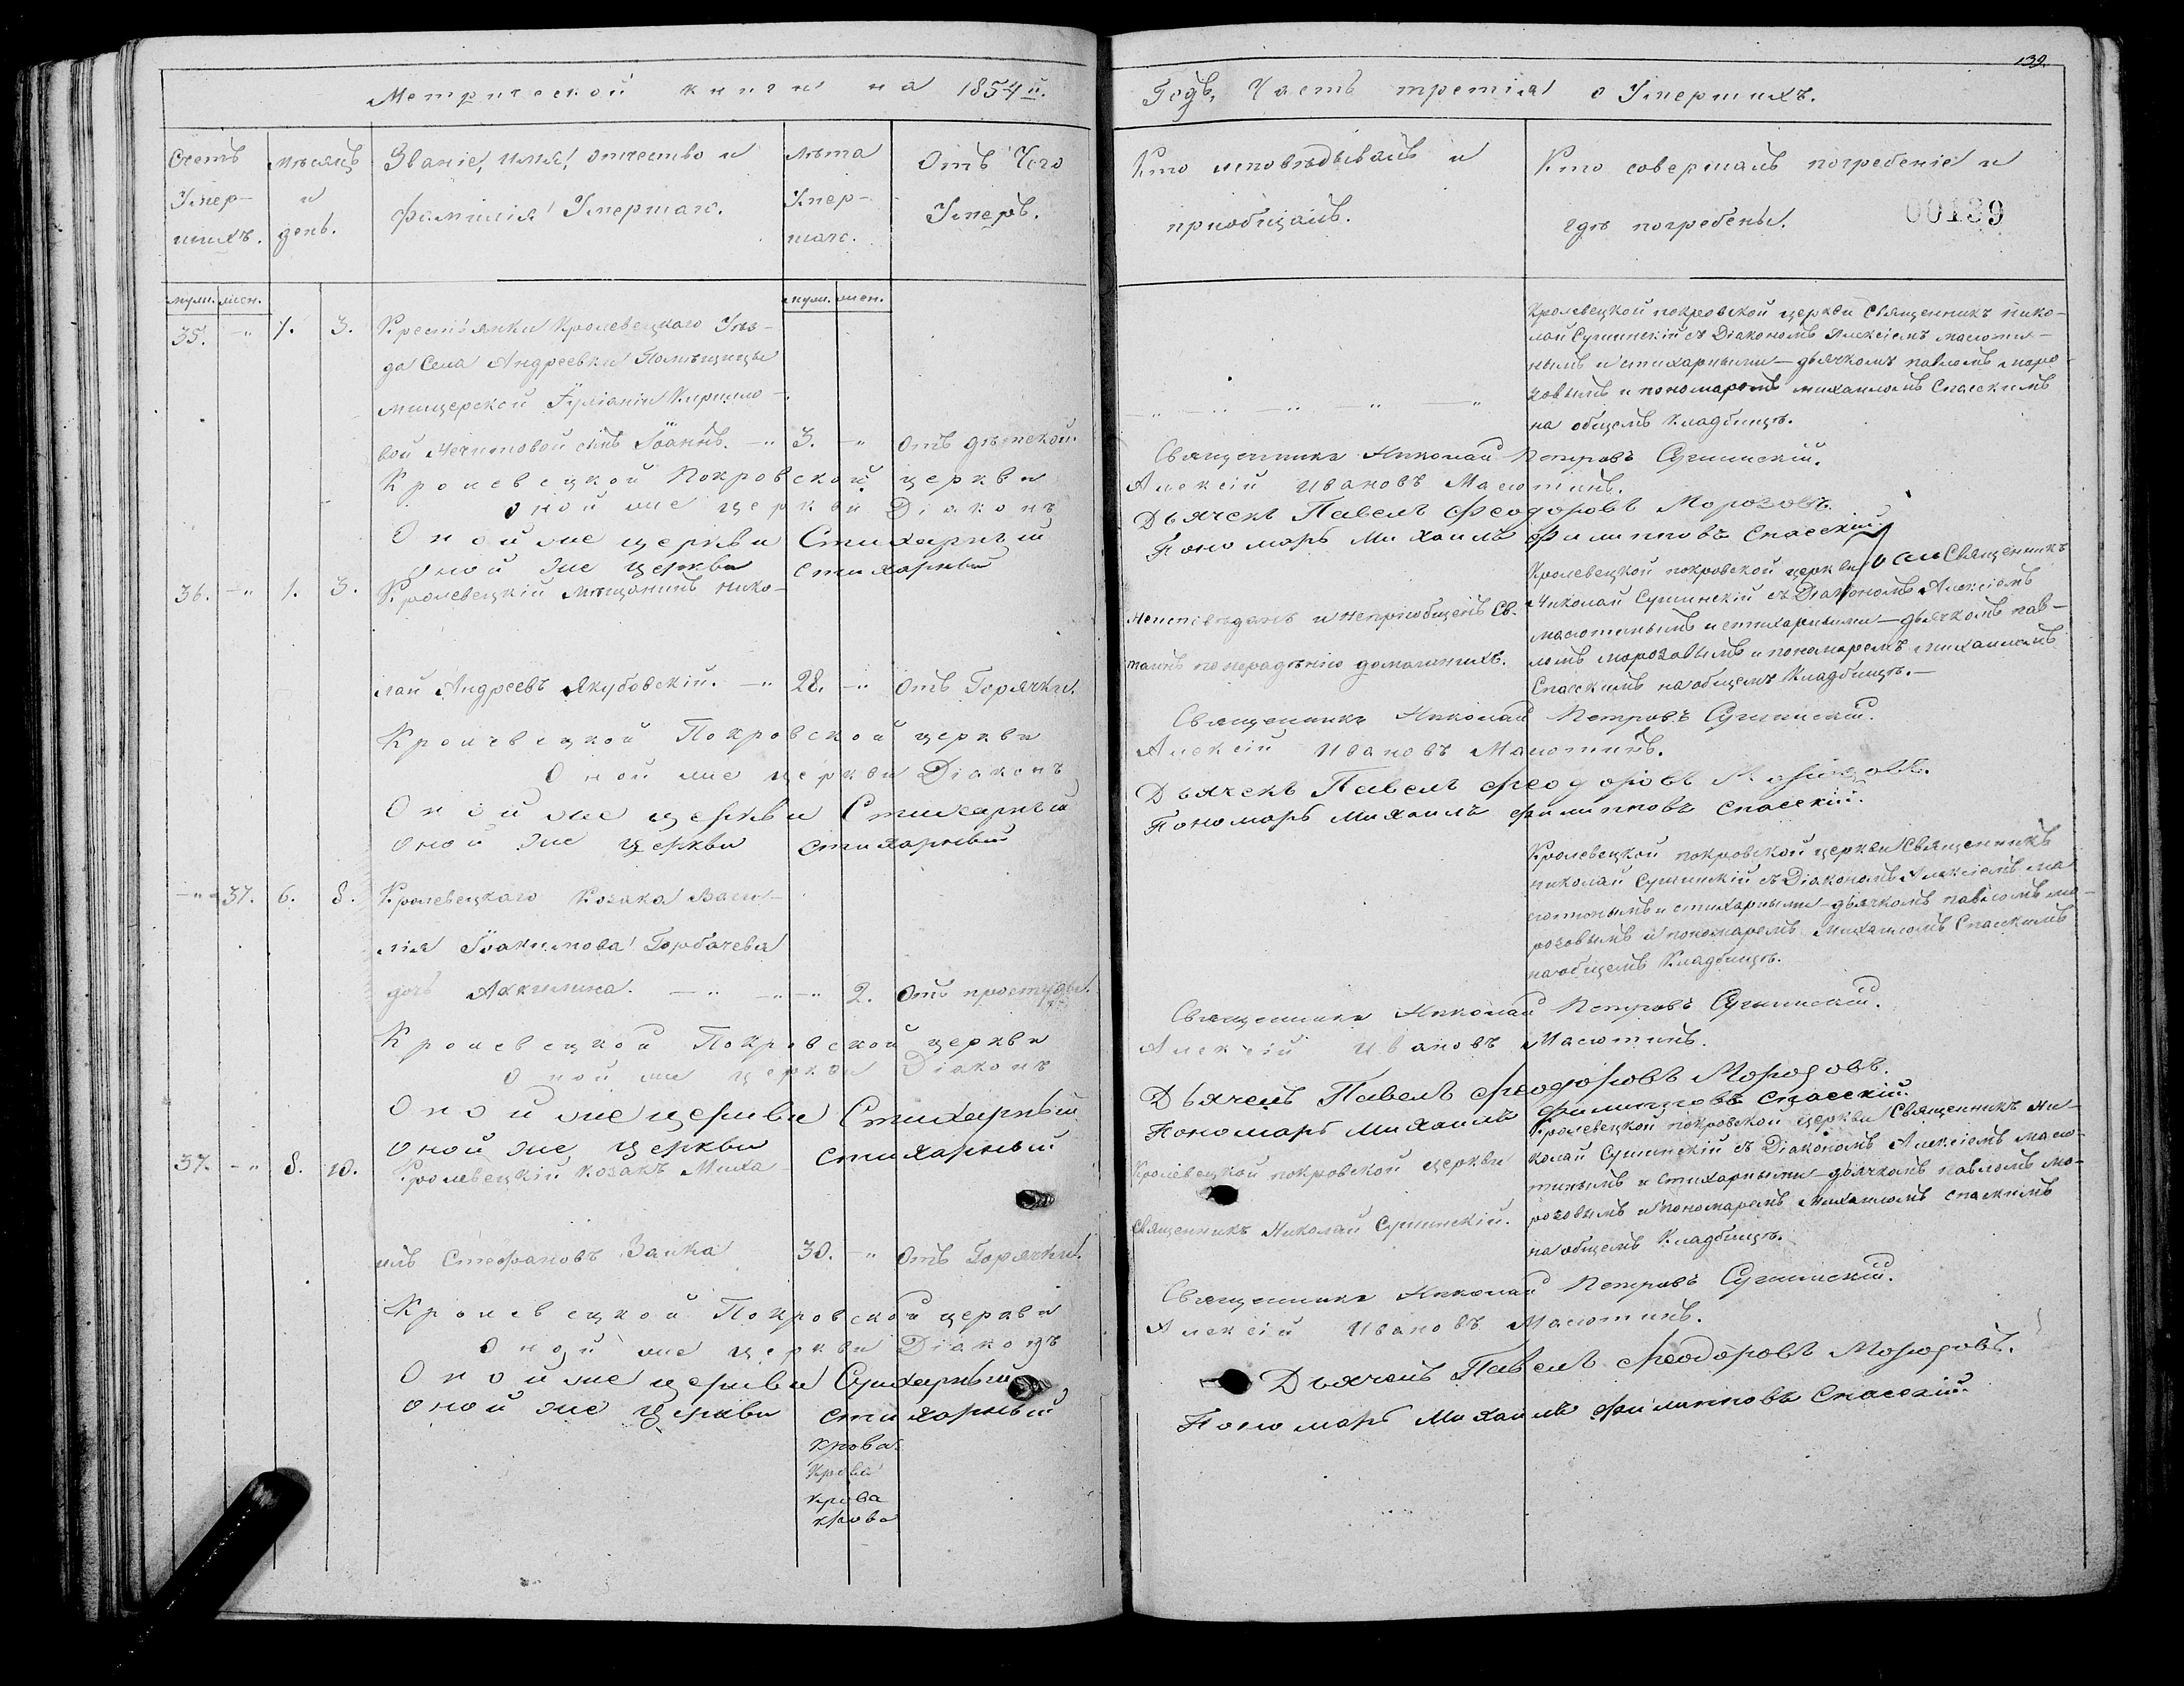 Метрической книги на 1854й.
Счетъ Умер- шихъ.
мѣсяцъ и день.
Званіе, имя, отчество и фамилія Умершаго.
Лѣта Умер- шаго.
Отъ Чего Умеръ.
муж. жен.
муж. жен.
35. -„ 1. 3. Крестьянки Кролевецкаго Уѣз-
да Села Андреевки Помѣщицы
мищерской Іуліаніи Кирилло-
вой сынъ Іоаннъ. -„ 3. -„ Отъ дѣтской.
Кролевецкой Покровской церкви
Оной же церкви Діаконъ
Оной же церкви Стихарный
Оной же церкви стихарный
36. -„ 1. 3. Кролевецкій мѣщанинъ Нико-
лай Андреевъ Якубовскій. -„ 28. -„ Отъ Горячки.
Кролевецкой Покровской церкви
Оной же церкви Діаконъ
Оной же церкви Стихарный
Оной же церкви стихарный
-„ 37. 6. 8. Кролевецкаго Козака Васи-
лія Іоакимова Горбачева
дочь Аккилина. -„ -„-„ 2. Отъ простуды.
Кролевецкой Покровской церкви
Оной же церкви Діаконъ
Оной же церкви Стихарный
Оной же церкви стихарный
37. -„ 8. 10. Кролевецкій козакъ Миха
илъ Стефановъ Заика 30. -„ Отъ Горячки.
Кролевецкой Покровской церкви
Оной же церкви Діаконъ
Оной же церкви Стихарный
Оной же церкви стихарный
крова
Крова
крова
крова
139.
Годъ, Часть третія о Умершихъ.
Кто исповѣдывалъ и
пріобщалъ.
Кто совершалъ погребеніе и
гдѣ погребены.
00139
Кролевецкой покровской церкви Священникъ Нико-
лай Сушинскій съ Діакономъ Алексіемъ малюти-
нымъ и стихарными - дьячкомъ павломъ моро-
зовымъ и пономаремъ михаиломъ Спасскимъ
на общемъ Кладбищѣ.
-„ -„ -„ -„ -„
Священникъ Николай Петровъ Сушинскій.
Алексій Ивановъ Малютинъ.
Дьячекъ Павелъ Феодоровъ Морозовъ.
Пономарь Михаилъ Филипповъ Спасскій.
Кролевецкой покровской церкви Священникъ
Николай Сушинскій съ Діакономъ Алексіемъ
малютинымъ и стихарными - дьячкомъ пав-
ломъ морозовымъ и пономаремъ михаиломъ
Спасскимъ на общемъ Кладбищѣ. -
Неисповѣданъ и непріобщенъ Св.
таинъ по нерадѣнію домашнихъ.
Священникъ Николай Петровъ Сушинскій.
Алексій Ивановъ Малютинъ.
Дьячекъ Павелъ Феодоровъ Морозовъ.
Пономарь Михаилъ Филипповъ Спасскій.
Кролевецкой покровской церкви Священникъ
Николай Сушинскій съ Діакономъ Алексіемъ ма
лютинымъ и стихарными - дьячкомъ павломъ мо-
розовымъ и пономаремъ михаиломъ Спасскимъ
на общемъ Кладбищѣ.
Священникъ Николай Петровъ Сушинскій.
Алексій Ивановъ Малютинъ.
Дьячекъ Павелъ Феодоровъ Морозовъ.
Пономарь Михаилъ Филипповъ Спасскій.
Кролевецкой покровской церкви
Священникъ Николай Сушинскій.
Кролевецкой покровской церкви Священникъ Ни-
колай Сушинскій съ Діакономъ Алексіемъ малю-
тинымъ и стихарными - дьячкомъ павломъ мо-
розовымъ и пономаремъ Михаиломъ спаскимъ
на общемъ Кладбищѣ.
Священникъ Николай Петровъ Сушинскій.
Алексій Ивановъ Малютинъ.
Дьячекъ Павелъ Феодоровъ Морозовъ.
Пономарь Михаилъ Филипповъ Спасскій.